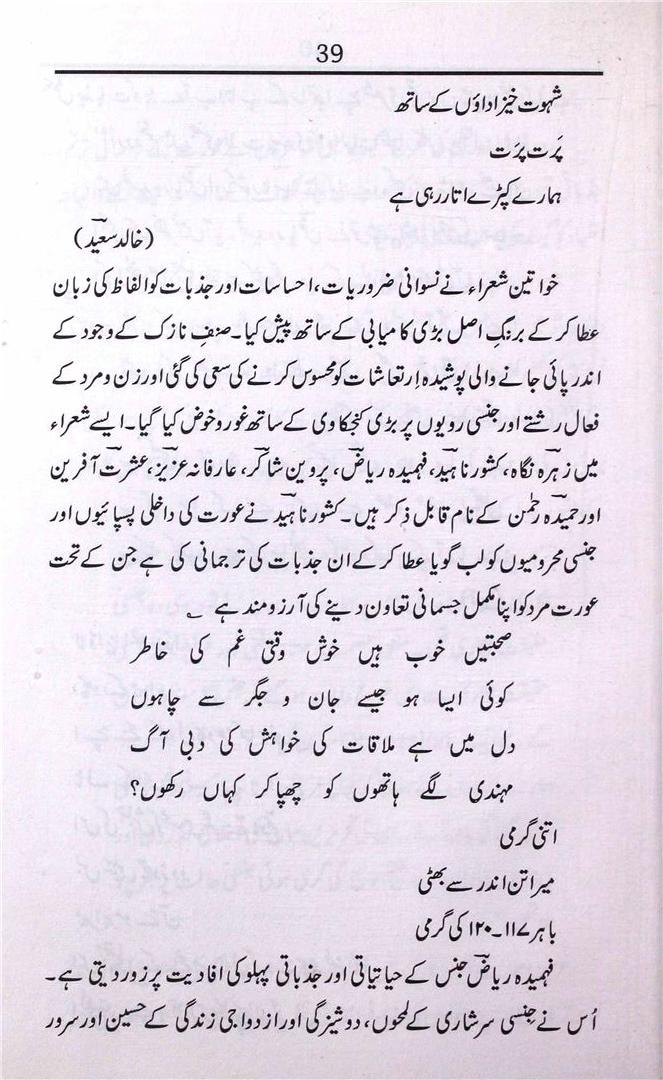 39
شہوت خیز اداؤں کے ساتھ
پَرت پرَت
ہمارے کپڑے اتار رہی ہے
(خالد سعید)
خواتین شعراء نے نسوانی ضروریات، احساسات اور جذبات کو الفاظ کی زبان
عطا کر کے برنگِ اصل بڑی کامیابی کے ساتھ پیش کیا۔ صنفِ نازک کے وجود کے
اندر پائی جانے والی پوشیدہ اِرتعاشات کو محسوس کرنے کی سعی کی گئی اور زن و مرد کے
فعال رشتے اور جنسی رویوں پر بڑی کنجکاوی کے ساتھ غور و خوض کیا گیا۔ ایسے شعراء
میں زہرہ نگاہ، کشور ناہید، فہمیدہ ریاض، پروین شاکر، عارفانہ عزیز، عشرت آفرین
اور حمیدہ رحمٰن کے نام قابل ذِکر ہیں۔ کشور ناہید نے عورت کی داخلی پسپائیوں اور
جنسی محرومیوں کو لب گویا عطا کر کے ان جذبات کی ترجمانی کی ہے جن کے تحت
عورت مرد کو اپنا مکمل جسمانی تعاون دینے کی آرزومند ہے ؂
صحبتیں خوب ہیں خوش وقتیِ غم کی خاطر
کوئی ایسا ہو جیسے جان و جگر سے چاہوں
دل میں ہے ملاقات کی خواہش کی دبی آگ
مہندی لگے ہاتھوں کو چھپا کر کہاں رکھوں؟
اتنی گرمی
میرا تن اندر سے بھٹی
باہر ۱۱۷۔۱۲۰ کی گرمی
فہمیدہ ریاض جنس کے حیاتیاتی اور جذباتی پہلو کی افادیت پر زور دیتی ہے۔
اُس نے جِنسی سرشاری کے لمحوں، دوشیزگی اور ازدواجی زندگی کے حسین اور سُرور